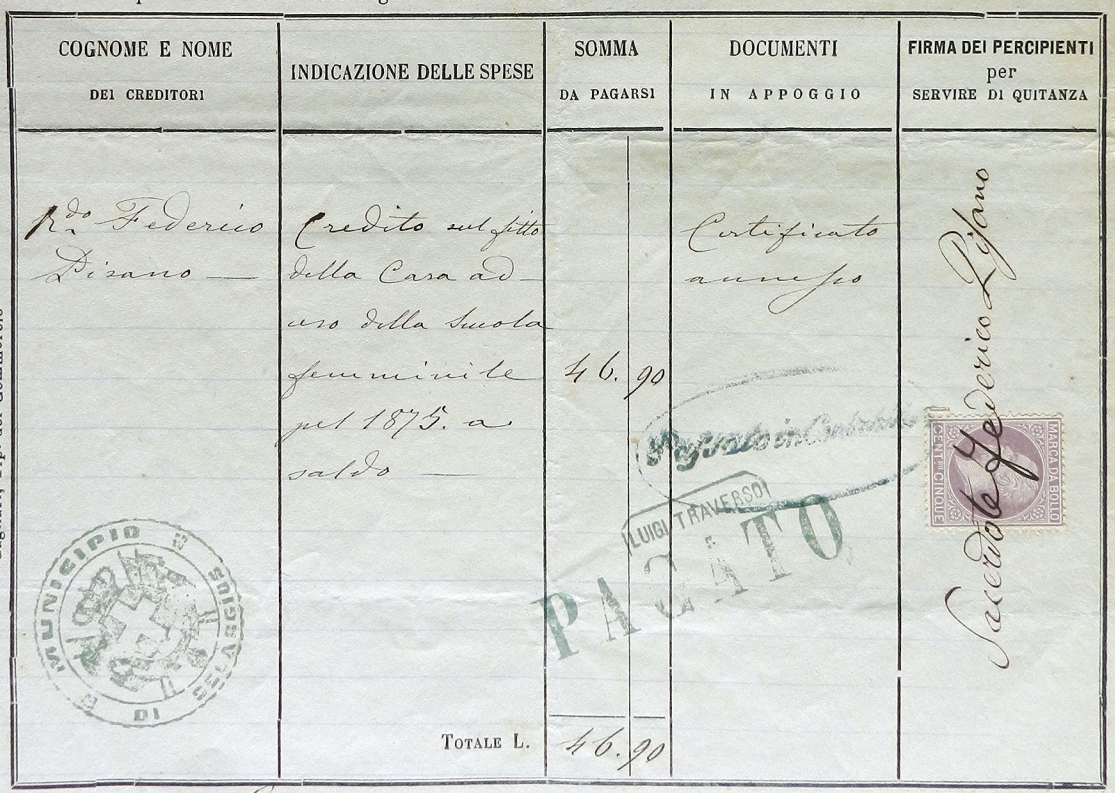 COGNOME E NOME
DEI CREDITORI
INDICAZIONE DELLE SPESE
SOMMA
DA PAGARSI
DOCUMENTI
IN APPOGGIO
FIRMA DEI PERCIPIENTI
per
SERVIRE DI QUITANZA
Rdo Federico
Pisano —
Credito sul fitto
della Casa ad
uso della Scuola
femminile
pel 1875. a
saldo —
46. 90
Certificato
annesso
Sacerdote Federico Pisano
MARCA DA BOLLO
CENT. CINQUE
LUIGI TRAVERSO
PAGATO
MUNICIPIO
DI
SELARGIUS
TOTALE L.
46. 90